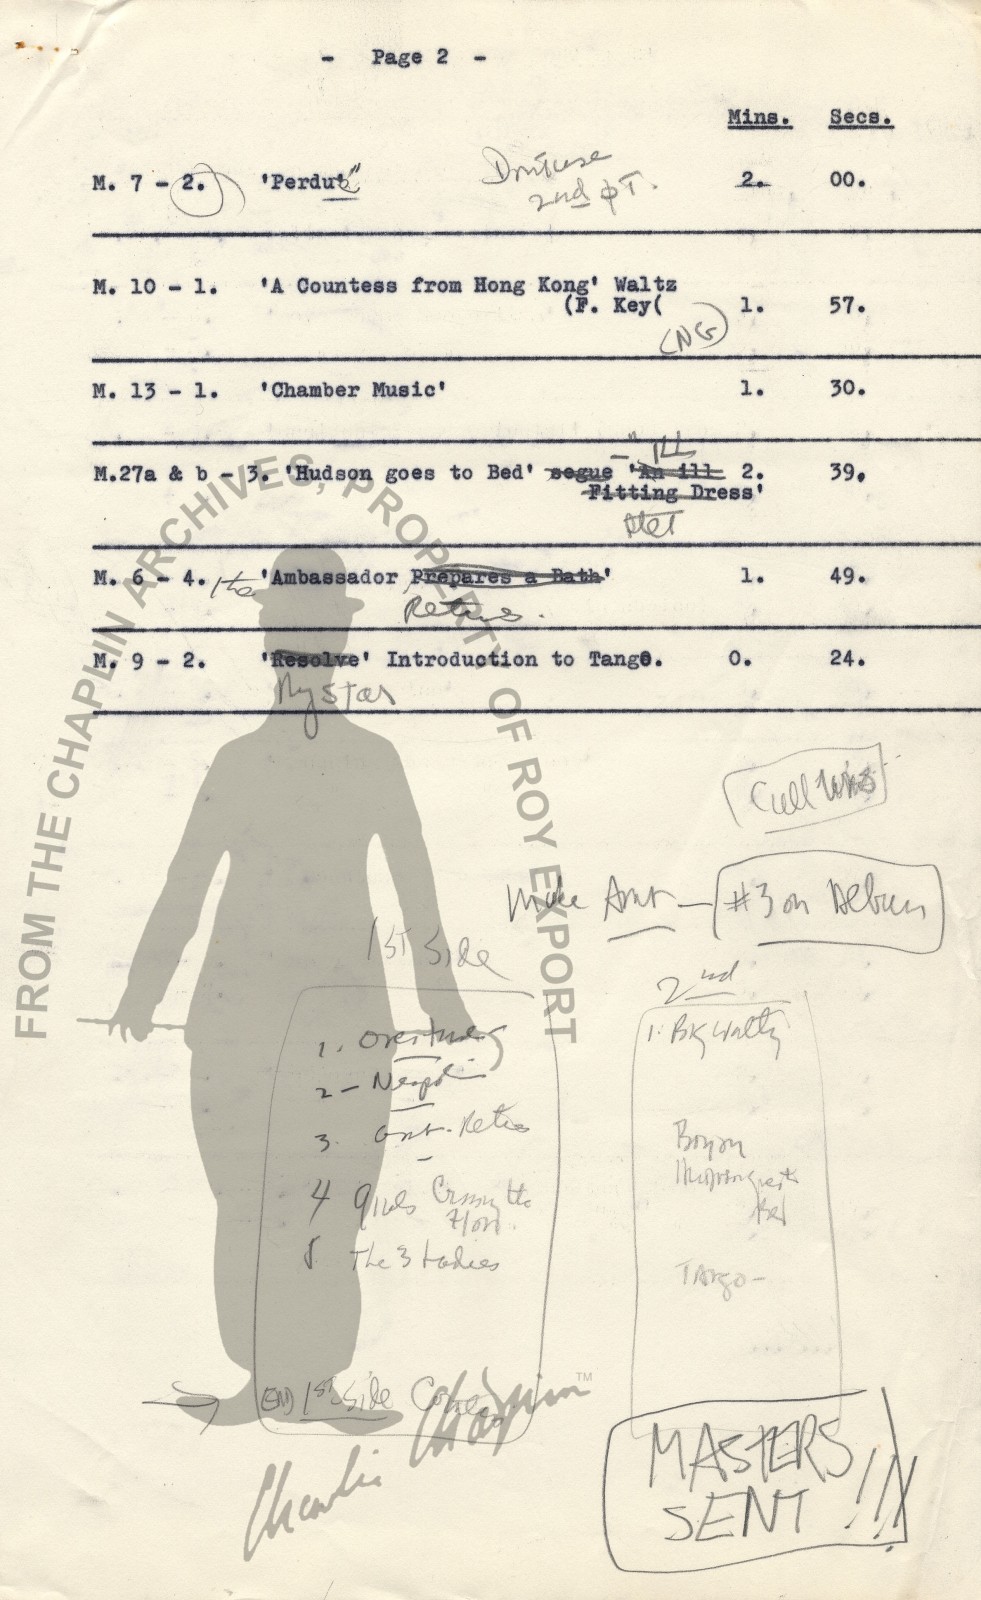 - Page 2 -
Mins. Secs.
M. 7 - 2. 'Perdu' 2. 00.
Dont use
2nd pt.
M. 10 - 1. 'A Countess from Hong Kong' Waltz
(F. Key( 1. 57.
(NG)
M. 13 - 1. 'Chamber Music' 1. 30.
ILL
M.27a & b - 3. 'Hudson goes to Bed' segue 'An ill 2. 39.
Fitting Dress'
M. 6 - 4. the 'Ambassador Prepares a Bath' 1. 49.
Retires.
M. 9 - 2. 'Resolve' Introduction to Tango. 0. 24.
My Star
Call
Make Amt - #3 on Album
1st Side
2nd
1. Overture
2 -
3. Amb. Retires
4 Crossing the
5 The 3 Ladies
END 1st Side
1. Big Waltz
Bed
Tango -
MASTERS
SENT!!!
FROM THE CHAPLIN ARCHIVES, PROPERTY OF ROY EXPORT
Charlie Chaplin TM